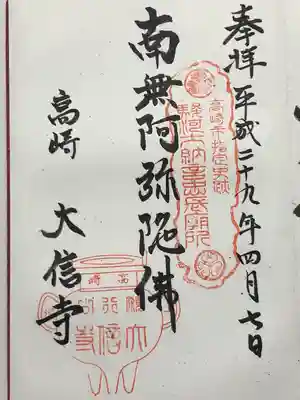 奉拝 平成二十九年四月七日
高崎市指定史跡
駿河大納言忠長廟所
南無阿弥陀佛
高崎 大信寺